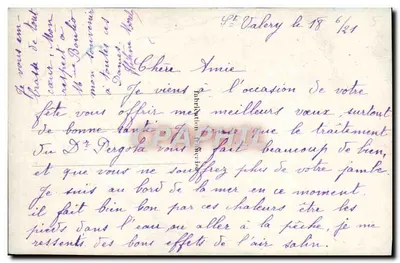 St Valery le 18 6/21
Chère Amie
Je viens à l'occasion de votre
fête vous offrir mes meilleurs vœux, surtout
de bonne santé. que le traitement
du Dr Pergola vous a fait beaucoup de bien,
et que vous ne souffrez plus de votre jambe.
Je suis au bord de la mer en ce moment
il fait bien bon par ces chaleurs être les
pieds dans l'eau ou aller à la pêche, je me
ressents des bons effets de l'air salin.
Je vous em-
brasse de tout
cœur. Mon
respect à
mon souvenir
à toutes ces
Dames.
CPARAMA